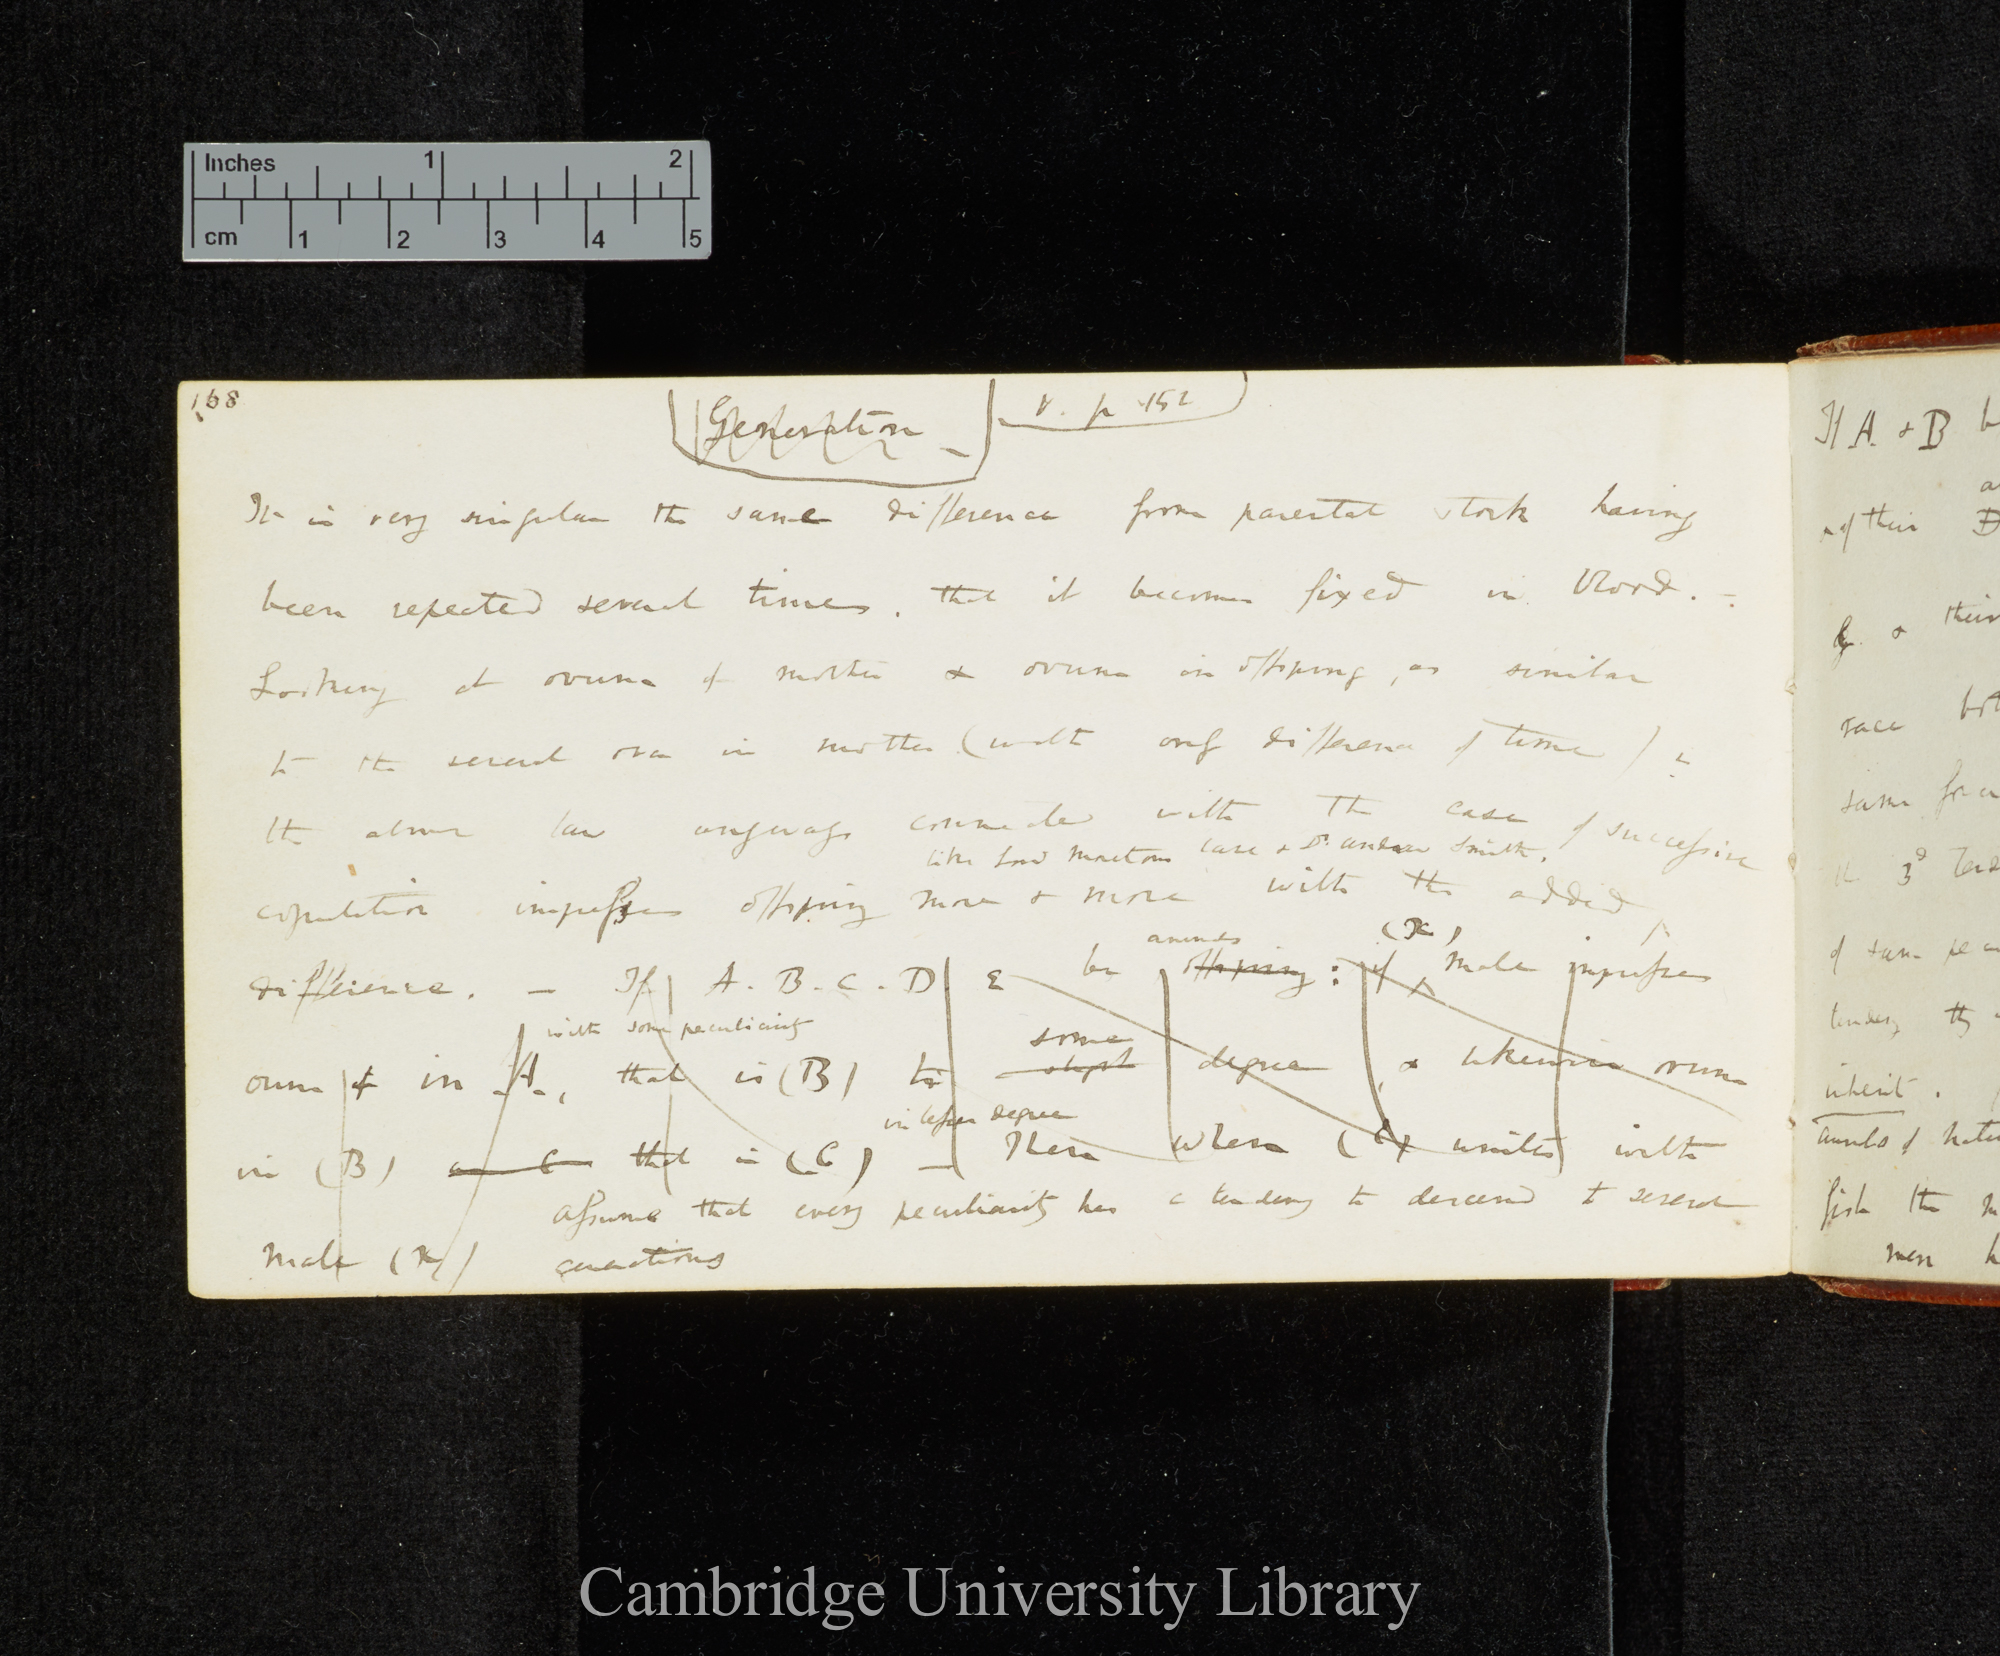 Inches 1 2
cm 1 2 3 4 5
168
Generation — v. p 152
It is very singular the same difference from parental stock having
been repeated several times. that it becomes fixed in blood. —
Looking at ovum of mother & ovum in offspring, as similar
to the several ova in mother (with only difference of time)
the above law anyways connected with the case of successive
like Lord Moreton's case & Dr. Andrew Smith.
copulation impresses offspring more & more with the added
(x)
animals
difference. — If A. B. C. D E be offspring: if male impresses
with some peculiarity
some
ovum in A, that is (B) to slight degree, & likewise ovum
in lesser degree
in (B) that in (C) — Then when (C) unites with
Assume that every peculiarity has a tendency to descend to several
Male (x) generations
If A. & B b
a
of their D
& their
race bot
same for
the 3d Tend
of same pe
tendency they
inherit.
fish the m
men h
Cambridge University Library